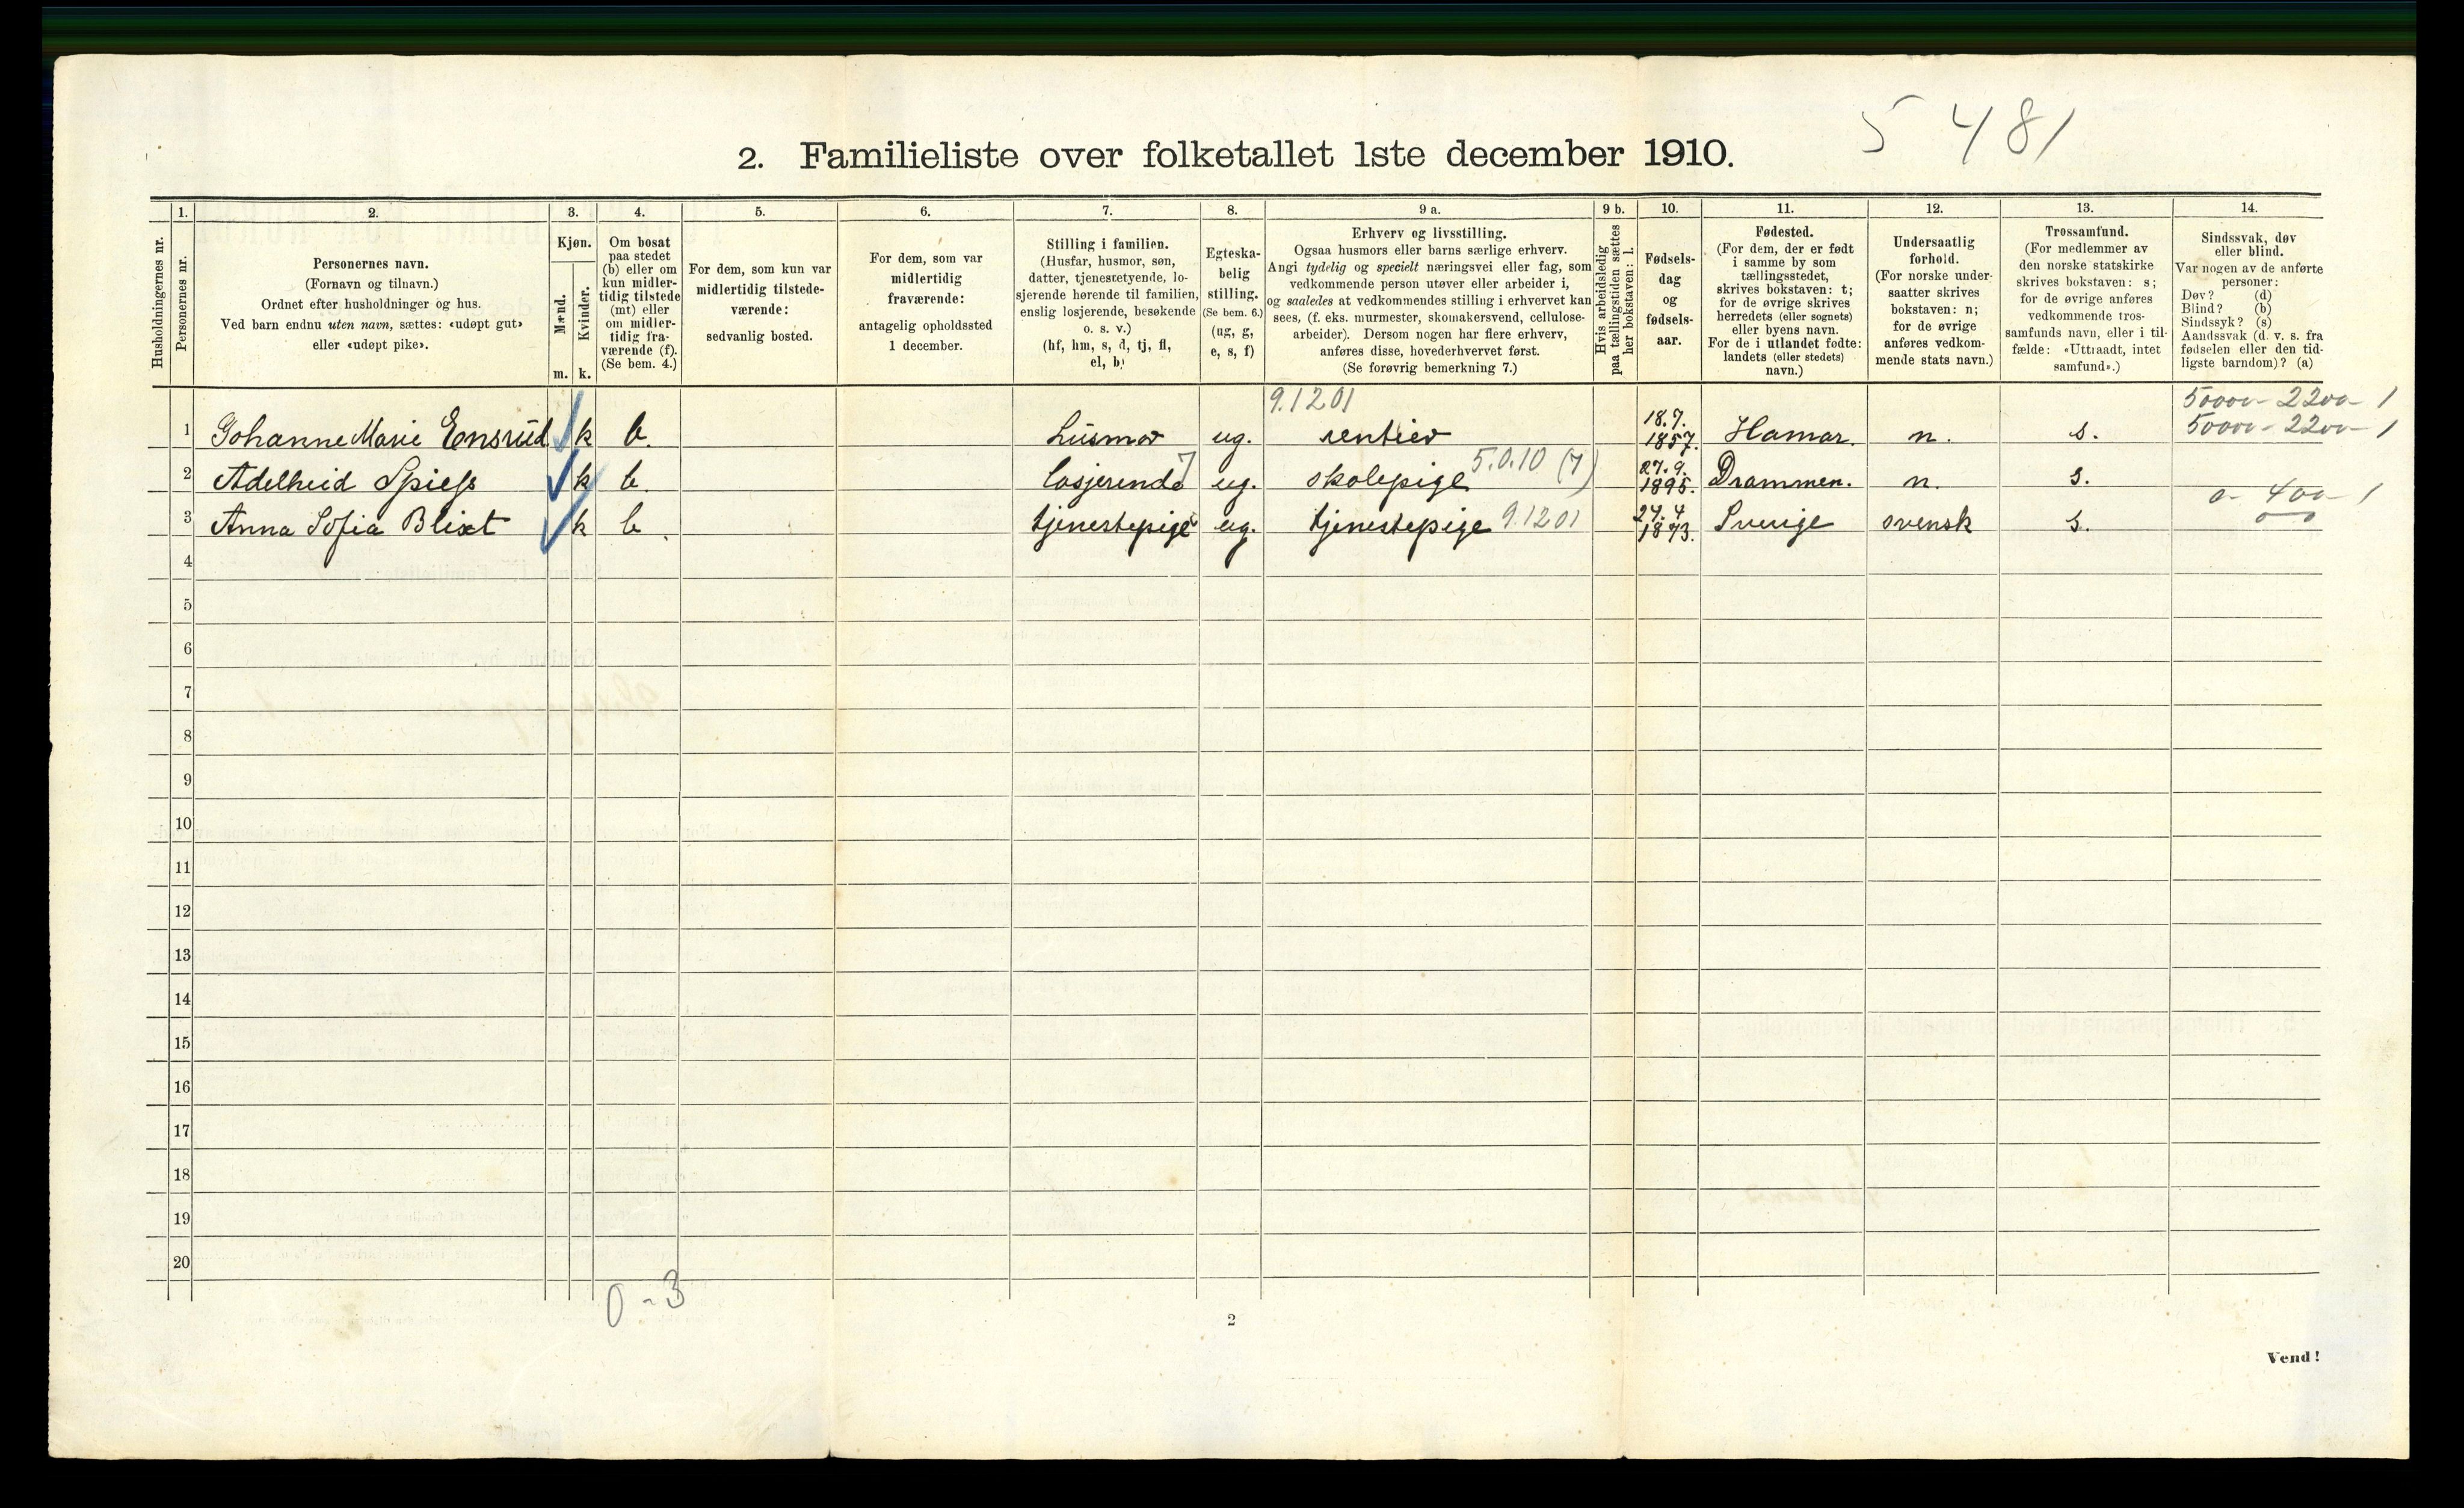 5 481
2. Familieliste over folketallet 1ste december 1910.
Husholdningernes nr.
1.
Personernes nr.
2.
Personernes navn.
(Fornavn og tilnavn.)
Ordnet efter husholdninger og hus.
Ved barn endnu uten navn, sættes: «udøpt gut»
eller «udøpt pike».
3.
Kjøn.
Mænd.
Kvinder.
m. k.
4.
Om bosat
paa stedet
(b) eller om
kun midler-
tidig tilstede
(mt) eller
om midler-
tidig fra-
værende (f).
(Se bem. 4.)
5.
For dem, som kun var
midlertidig tilstede-
værende:
sedvanlig bosted.
6.
For dem, som var
midlertidig
fraværende:
antagelig opholdssted
1 december.
7.
Stilling i familien.
(Husfar, husmor, søn,
datter, tjenestetyende, lo-
sjerende hørende til familien,
enslig losjerende, besøkende
o. s. v.)
(hf, hm, s, d, tj, fl,
el, b)
8.
Egteska-
belig
stilling.
(Se bem. 6.)
(ug, g,
e, s, f)
9 a.
Erhverv og livsstilling.
Ogsaa husmors eller barns særlige erhverv.
Angi tydelig og specielt næringsvei eller fag, som
vedkommende person utøver eller arbeider i,
og saaledes at vedkommendes stilling i erhvervet kan
sees, (f. eks. murmester, skomakersvend, cellulose-
arbeider). Dersom nogen har flere erhverv,
anføres disse, hovederhvervet først.
(Se forøvrig bemerkning 7.)
9 b.
Hvis arbeidsledig
paa tællingstiden sættes
her bokstaven: l.
10.
Fødsels-
dag
og
fødsels-
aar.
11.
Fødested.
(For dem, der er født
i samme by som
tællingsstedet,
skrives bokstaven: t;
for de øvrige skrives
herredets (eller sognets)
eller byens navn.
For de i utlandet fødte:
landets (eller stedets)
navn.)
12.
Undersaatlig
forhold.
(For norske under-
saatter skrives
bokstaven: n;
for de øvrige
anføres vedkom-
mende stats navn.)
13.
Trossamfund.
(For medlemmer av
den norske statskirke
skrives bokstaven: s;
for de øvrige anføres
vedkommende tros-
samfunds navn, eller i til-
fælde: «Uttraadt, intet
samfund».)
14.
Sindssvak, døv
eller blind.
Var nogen av de anførte
personer:
Døv? (d)
Blind? (b)
Sindssyk? (s)
Aandssvak (d. v. s. fra
fødselen eller den tid-
ligste barndom)? (a)
9.1201 50000 - 2200 - 1
1 Johanne Marie Ensrud k b. husmor ug. rentier 18.7. 1857. Hamar. n. s. 50000 - 2200 - 1
2 Adelheid Spiess k b. losjerende 7 ug. skolepige 5.0.10 (7) 27.9. 1895. Drammen. n. s.
0 - 400 - 1
3 Anna Sofia Blixt k b. tjenestepige ug. tjenestepige 9.1201 27.4 1873. Sverige svensk s.
4
5
6
7
8
9
10
11
12
13
14
15
16
17
18
19
20
0 - 3
2
Vend!